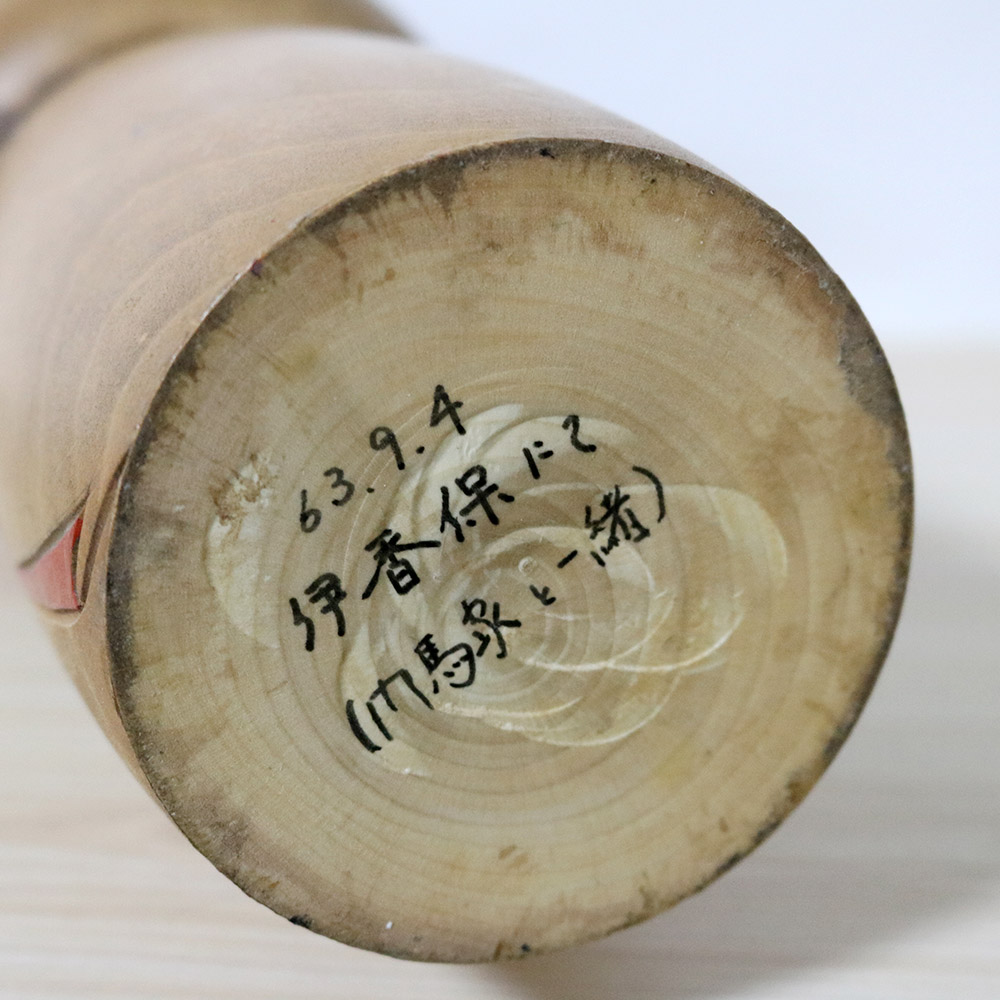 63.9.4
伊香保にて
(馬家と一緒)